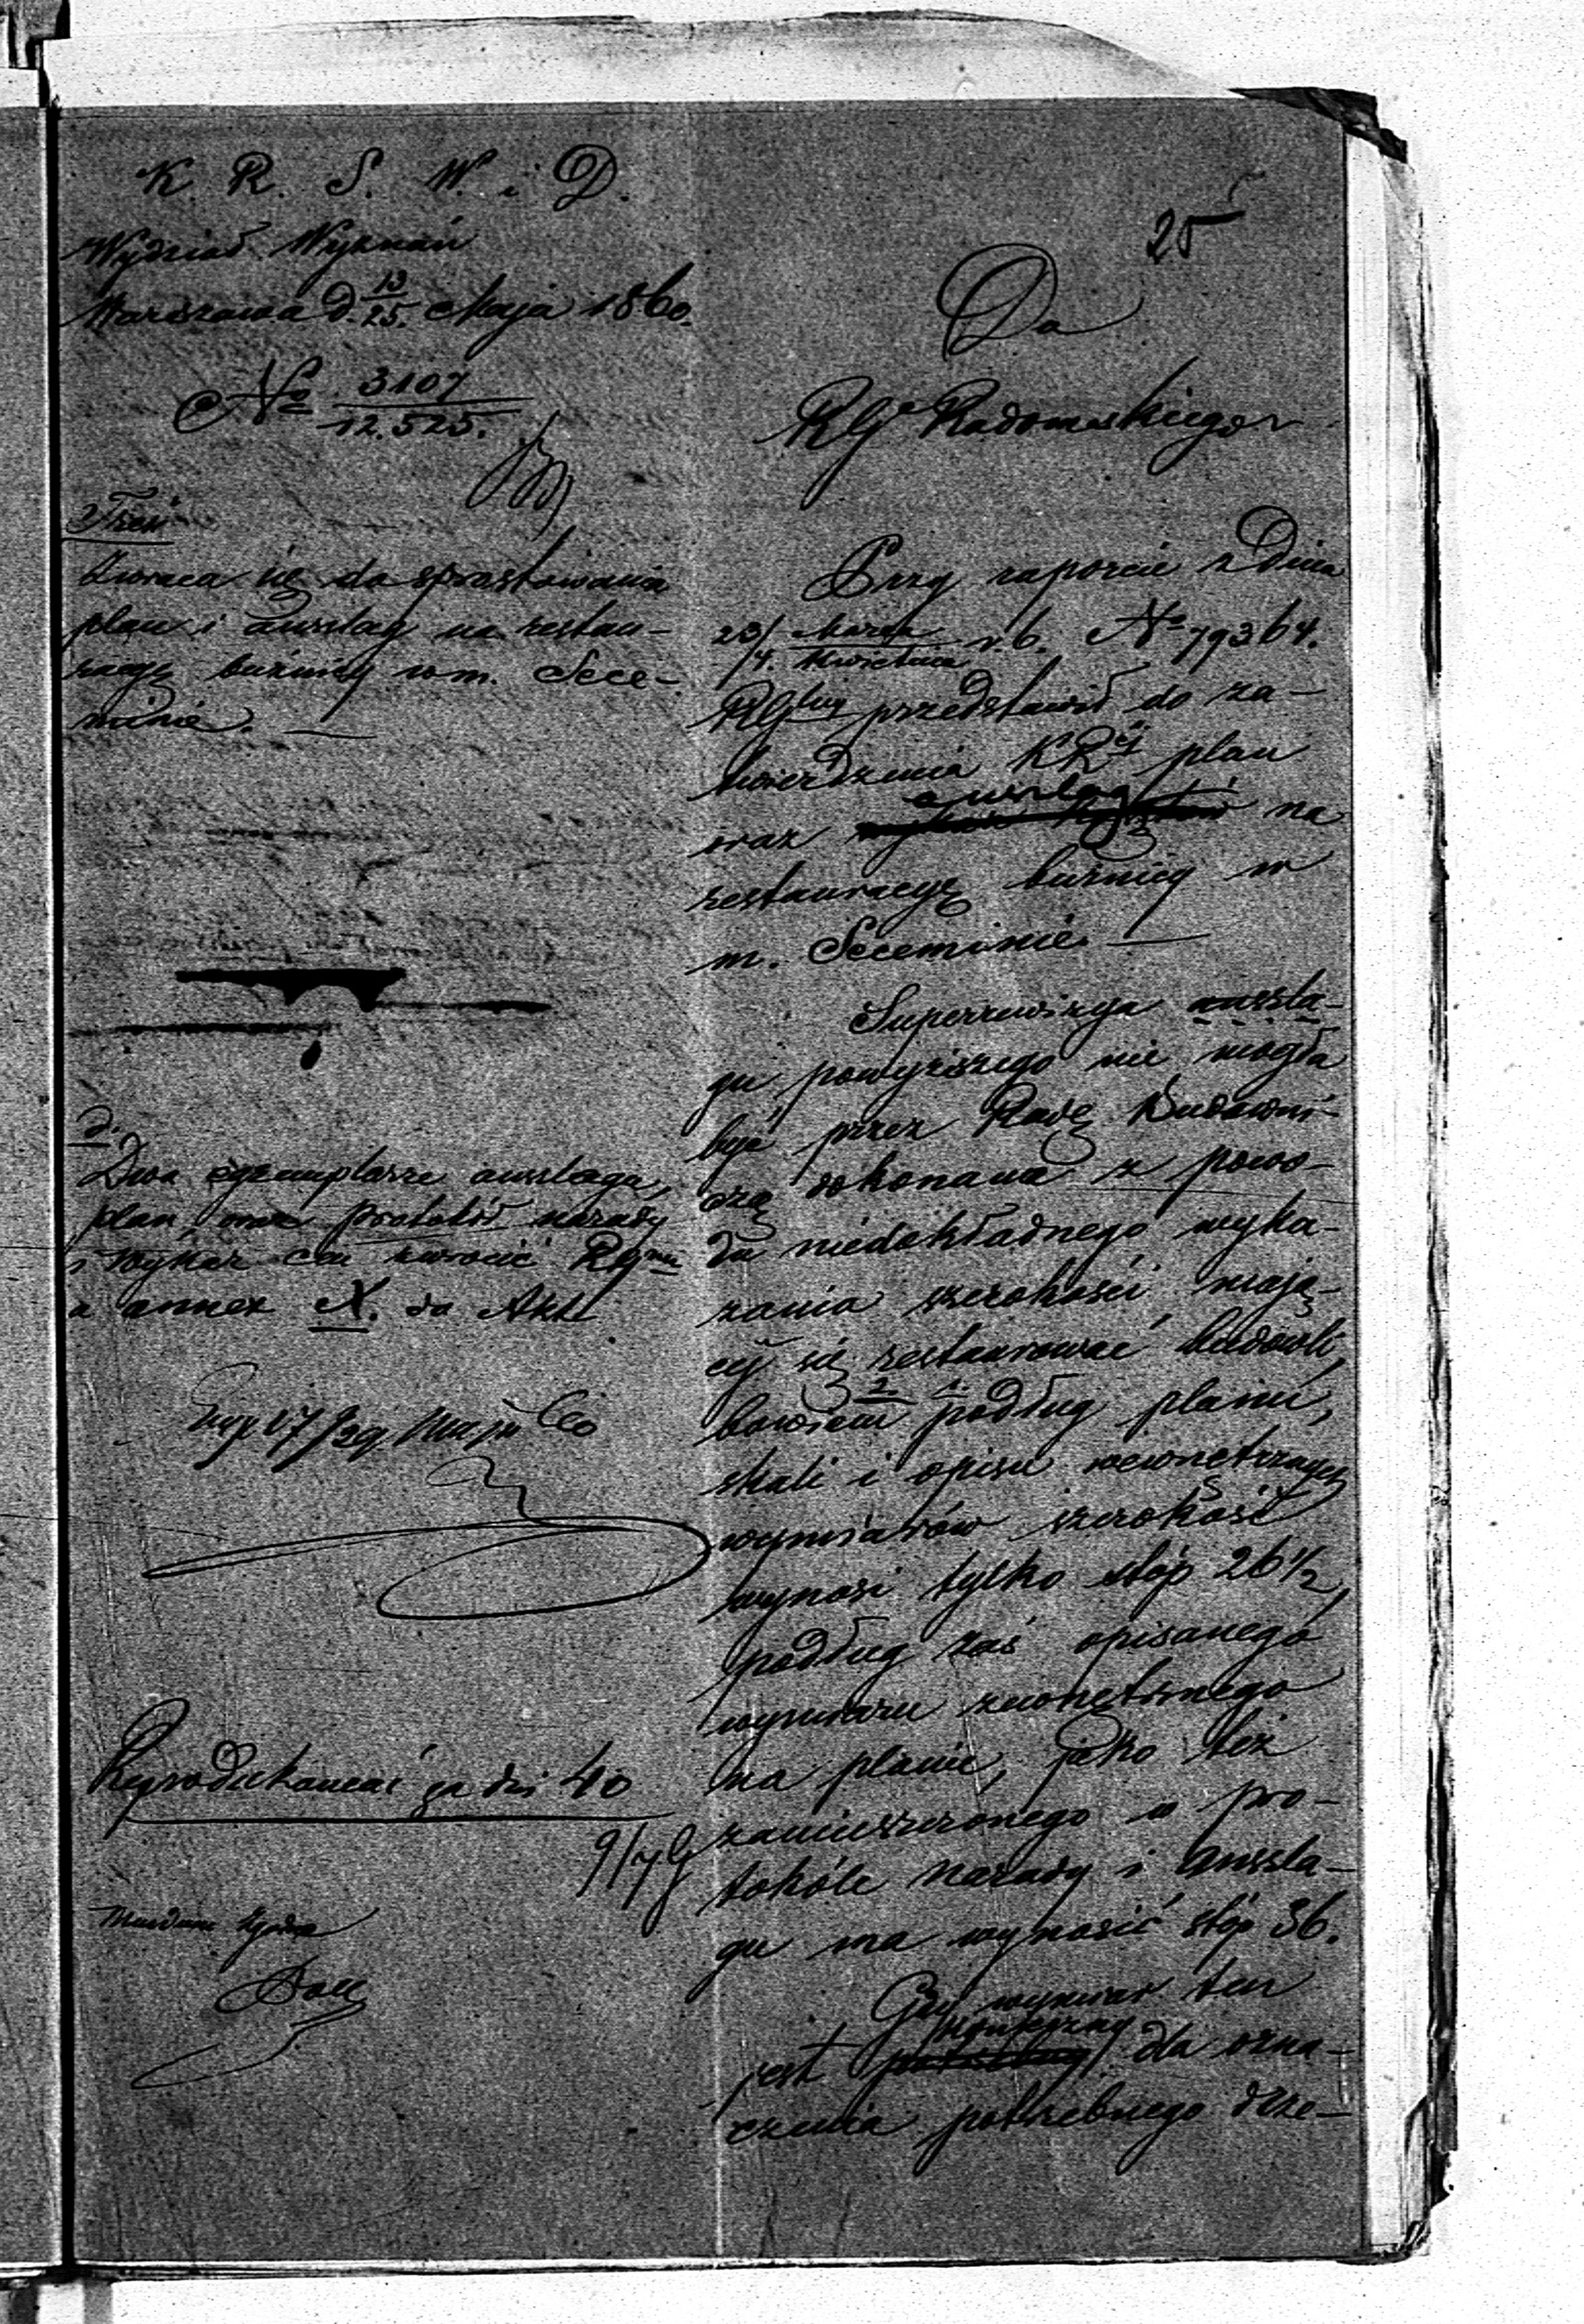 K. R. S. W. i D.
Wydział Wyznań
Warszawa d. 13/25. Maja 1860.
№ 3107/12.525.
Treść
Zwraca się do sprostowania
plan i ausslag na restau-
racyę bużnicy w m. Sece-
minie. —
d.
Dwa egzemplarze ausslaga,
plan, oraz protokół narady
i wykaz cen zwrócić RGmu
a annex X. do Akt.
Exp 17/29. Maja 860
Reprodukować za dni 40
9/7
25
Do
RGo Radomskiego
Przy raporcie z Dnia
23/4. Marca/Kwietnia r. b. № 79364.
RGlny przedstawił do za-
twierdzenia KRej plan
oraz ausslag na
restauracyę bużnicy w
m. Seceminie. —
Superrewizya aussla-
gu powyższego nie mogła
być przez Radę Budowni-
czą dokonaną z powo-
du niedokładnego wyka-
zania szerokości mają-
cej się restaurować budowli,
bowiem 2. 1. podług planu,
skali i opisu wewnętrznych
wymiarów szerokość
wynosi tylko stóp 26 1/2,
podług zaś opisanego
wymiaru zewnętrznego
na planie, jako też
zamieszczonego w pro-
tokóle narady i aussla-
gu ma wynosić stóp 36.
Gdy wymiar ten
jest konieczny dla ozna-
czenia potrzebnego drze-